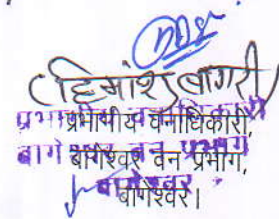 (हिमांशु बागरी)
प्रभागीय वनाधिकारी,
बागेश्वर वन प्रभाग,
बागेश्वर।